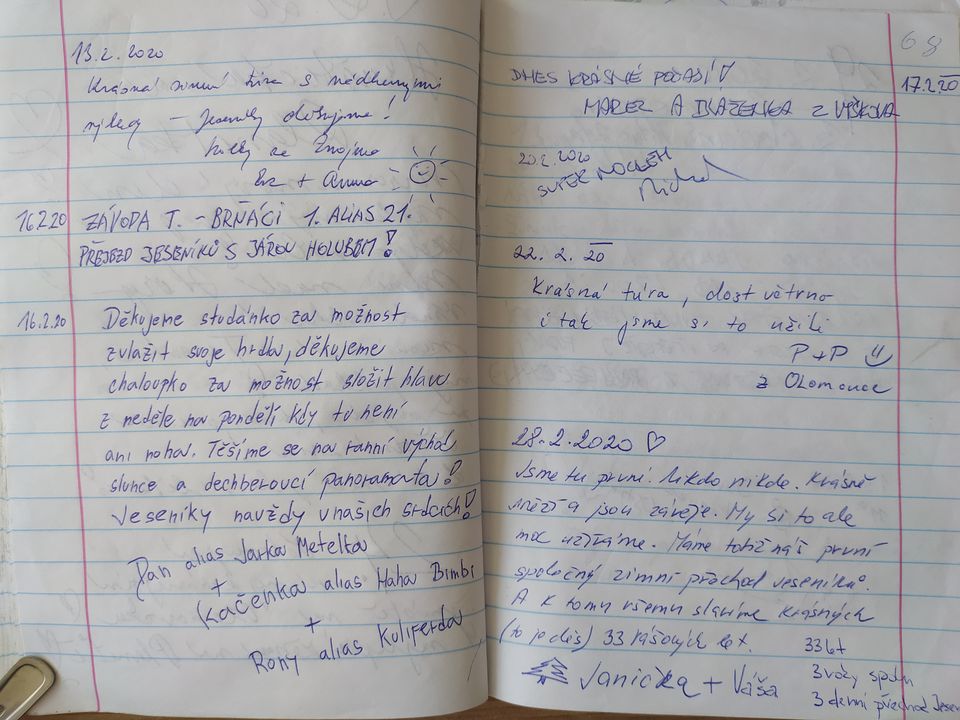 13.2.2020
Krásná zimní túra s nádhernými
výhledy – Jeseníky děkujeme!
ze Znojma
+ Anna
16.2.20 ZÁVODA T. – BRŇÁCI 1. ALIAS 21.
PŘEJEZD JESENÍKŮ S JÁROU HOLUBEM!
16.2.20 Děkujeme studánko za možnost
zvlažit svoje hrdla, děkujeme
chaloupko za možnost složit hlavu
z neděle na pondělí kdy tu není
ani noha. Těšíme se na ranní východ
slunce a dechberoucí panoramata!
Jeseníky navždy v našich srdcích!
Dan alias Jarka Metelka
+
Kačenka alias Haha Bimbi
+
Rony alias Kuliferda
68
17.2.20
DNES KRÁSNÉ POČASÍ!
MAREK A BLAŽENKA Z VYŠKOVA
20.2.2020
SUPER NOCLEH
Michal
22. 2. 20
Krásná túra, dost větrno
i tak jsme si to užili
P+P
z Olomouce
28.2.2020 ♡
Jsme tu první. Nikdo nikde. Krásně
sněží a jsou závěje. My si to ale
moc užíváme. Máme totiž náš první
společný zimní přechod Jeseníků.
A k tomu všemu slavíme krásných
(to je děs) 33 let.
Janička + Váša
33 let
3 spolu
3 denní přechod Jesen